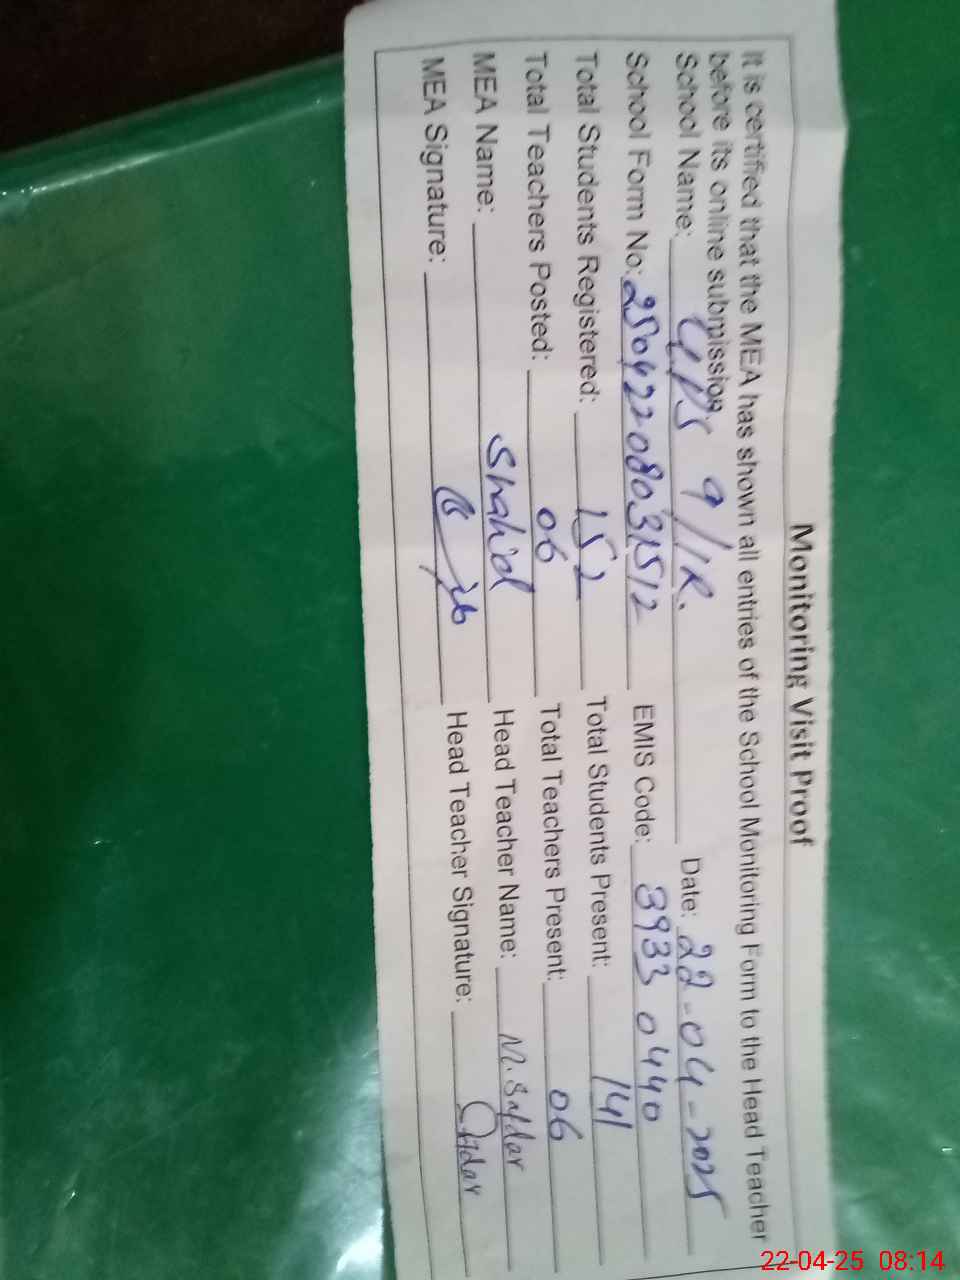 Monitoring Visit Proof
It is certified that the MEA has shown all entries of the School Monitoring Form to the Head Teacher
before its online submission.
School Name: GPS 9/1R. Date: 22-04-2025
School Form No: 25042208031512 EMIS Code: 3933 0440
Total Students Registered: 152 Total Students Present: 141
Total Teachers Posted: 06 Total Teachers Present: 06
MEA Name: Shahid Head Teacher Name: M. Safdar
MEA Signature: Head Teacher Signature: Safdar
22-04-25 08:14